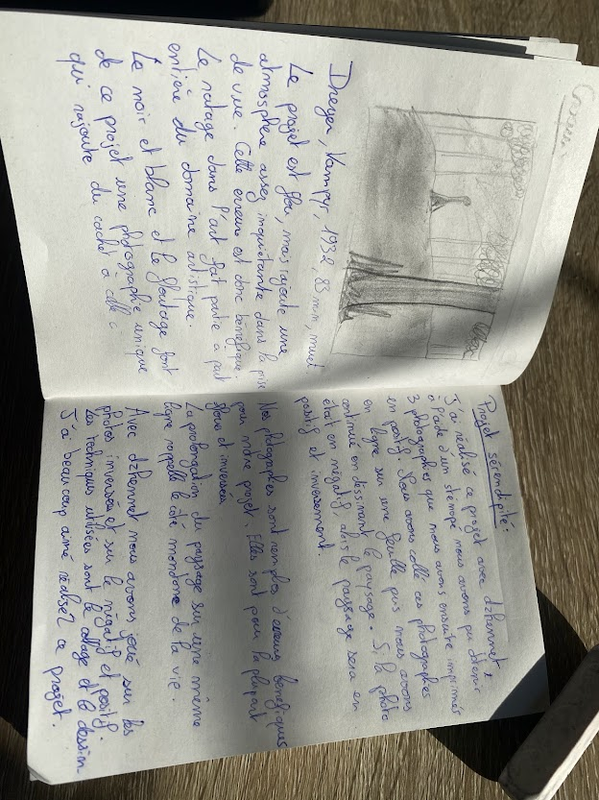 Dreyer, Vampyr, 1932, 83 min, muet
Le projet est flou, mais ajoute une
atmosphère assez inquiétante dans la prise
de vue. Cette erreur est donc bénéfique.
Le ratage dans l'art fait partie a part
entière du domaine artistique.
Le noir et blanc et le floutage font
de ce projet une photographie unique
qui rajoute du cachet a celle ci
Projet sérendipité:
J'ai réalisé ce projet avec dzhennet,
à l'aide d'un sténopé nous avons pu obtenir
3 photographies que nous avons ensuite imprimés
en positif. Nous avons collé ces photographies
en ligne sur une feuille puis nous avons
continué en dessinant le paysage. Si la photo
était en négatif alors le paysage sera en
positif et inversement.
Nos photographies sont remplies d'erreurs bénéfiques
pour notre projet. Elles sont pour la plupart
floue et inversées
La prolongation du paysage sur une même
ligne rappelle le côté monotone de la vie.
Avec dzhennet nous avons joué sur les
photos inversées et sur le négatif et positif.
Les techniques utilisées sont le collage et le dessin
J'ai beaucoup aimé réaliser ce projet.